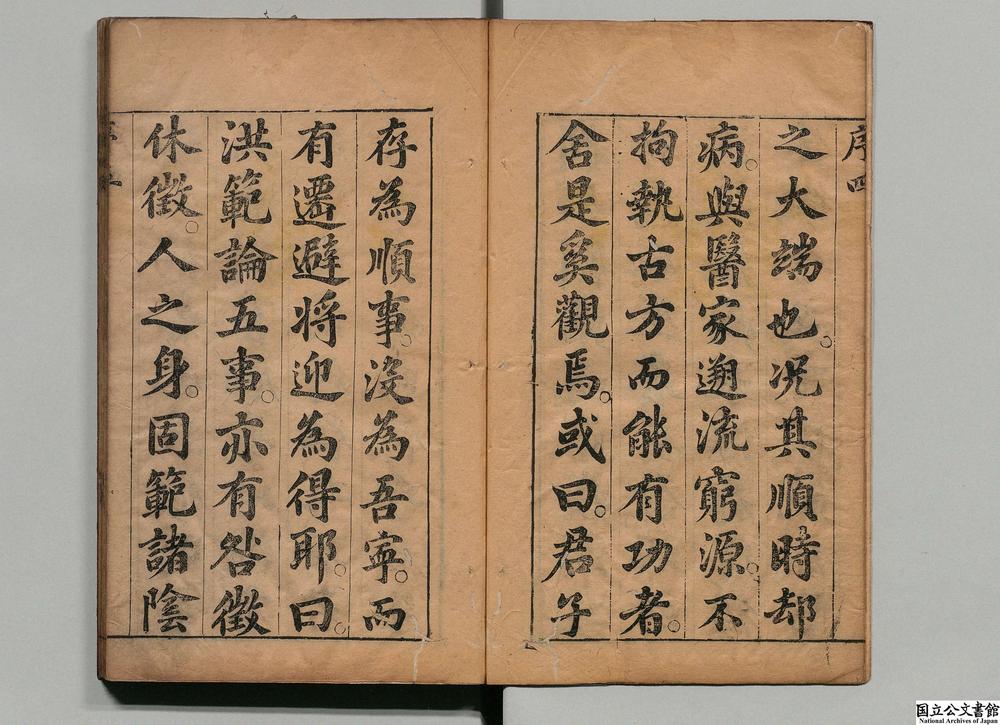 序四
之大端也。况其順時却
病。與醫家遡流窮源。不
拘執古方而能有功者。
舍是奚觀焉。或曰。君子
存為順事。沒為吾寧。而
有遷避將迎為得耶。曰。
洪範論五事。亦有咎徵
休徵。人之身。固範諸陰
国立公文書館
National Archives of Japan